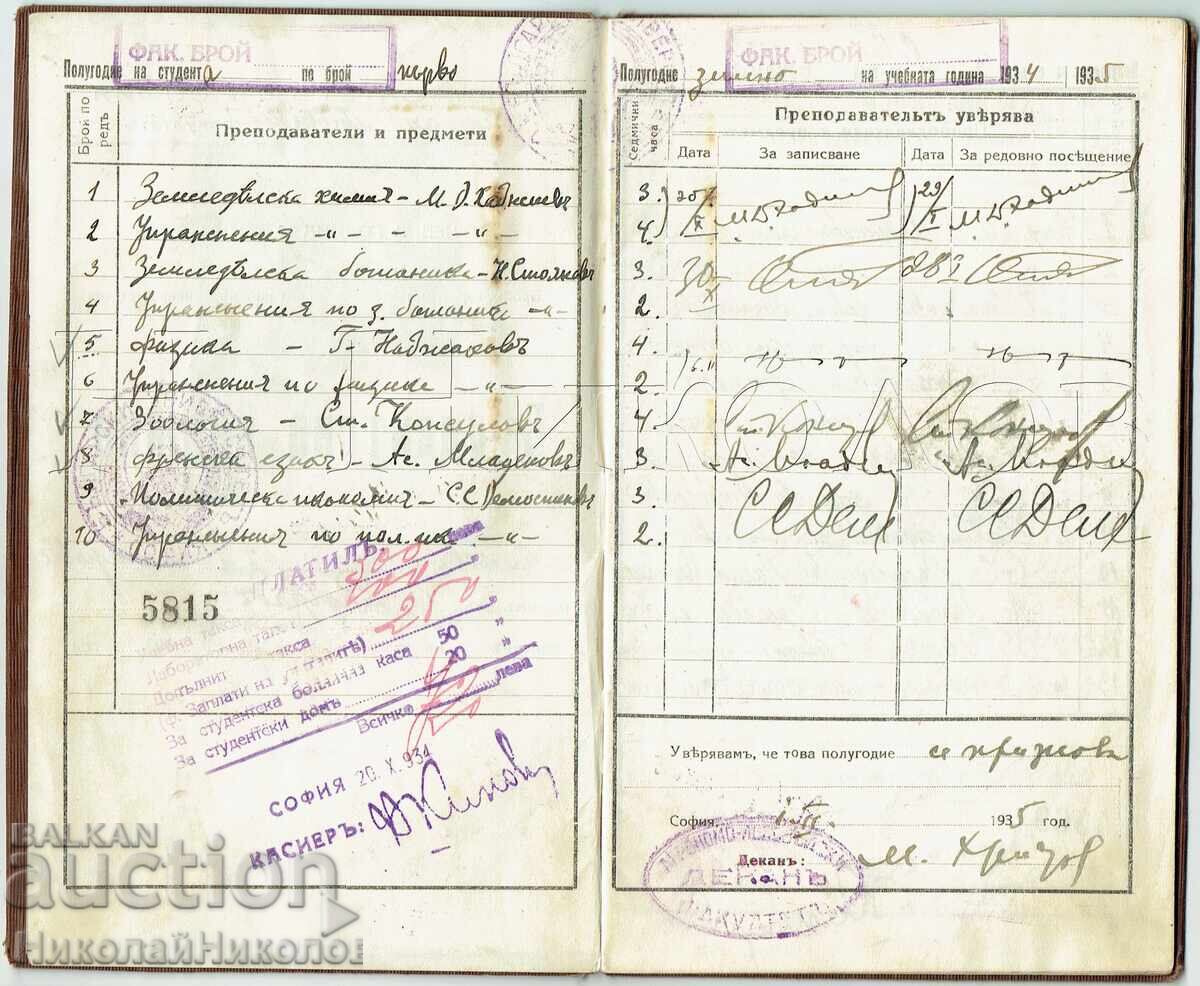 ФАК. БРОЙ
Полугодие на студента по брой първо
Брой по редъ
Преподаватели и предмети
1 Земледѣлска химия - М. Д.
2 Упражнения -"- - -"-
3 Земледѣлска ботаника - Н. Стояновъ
4 Упражнения по з. ботаника -"-
5 Физика - Г. Наджаковъ
6 Упражнения по физика -"-
7 Зоология - Ст. Консуловъ
8 Френски езикъ - Ас. Младеновъ
9 Политическа икономия - С. С. Демостеновъ
10 Упражнения по пол. ик. -"-
5815
ПЛАТИЛЪ
Учебна такса 300 лева
Лабораторна такса "
Допълнит. такса 250 "
За студентска болнична каса 50 "
За студентски домъ 20 "
Всичко лева
СОФИЯ 20. X. 934
КАСИЕРЪ:
ФАК. БРОЙ
Полугодие зимно на учебната година 1934 1935
Седмични часа
Преподавательтъ увѣрява
Дата За записване Дата За редовно посѣщение
3.
4. X I
3. 30 X 28 I
2.
4.
2.
4. Ст. Консулов Ст. Консулов
3. Ас. Младен Ас. Младен
3. С С Дем С С Дем
2.
Увѣрявамъ, че това полугодие се признава
София, III 1935 год.
Деканъ: М. Христов
АГРОНОМО-ЛЕСОВЪДСКИ
ДЕКАНЪ
ФАКУЛТЕТЪ
BALKAN
auction
НиколайНиколов